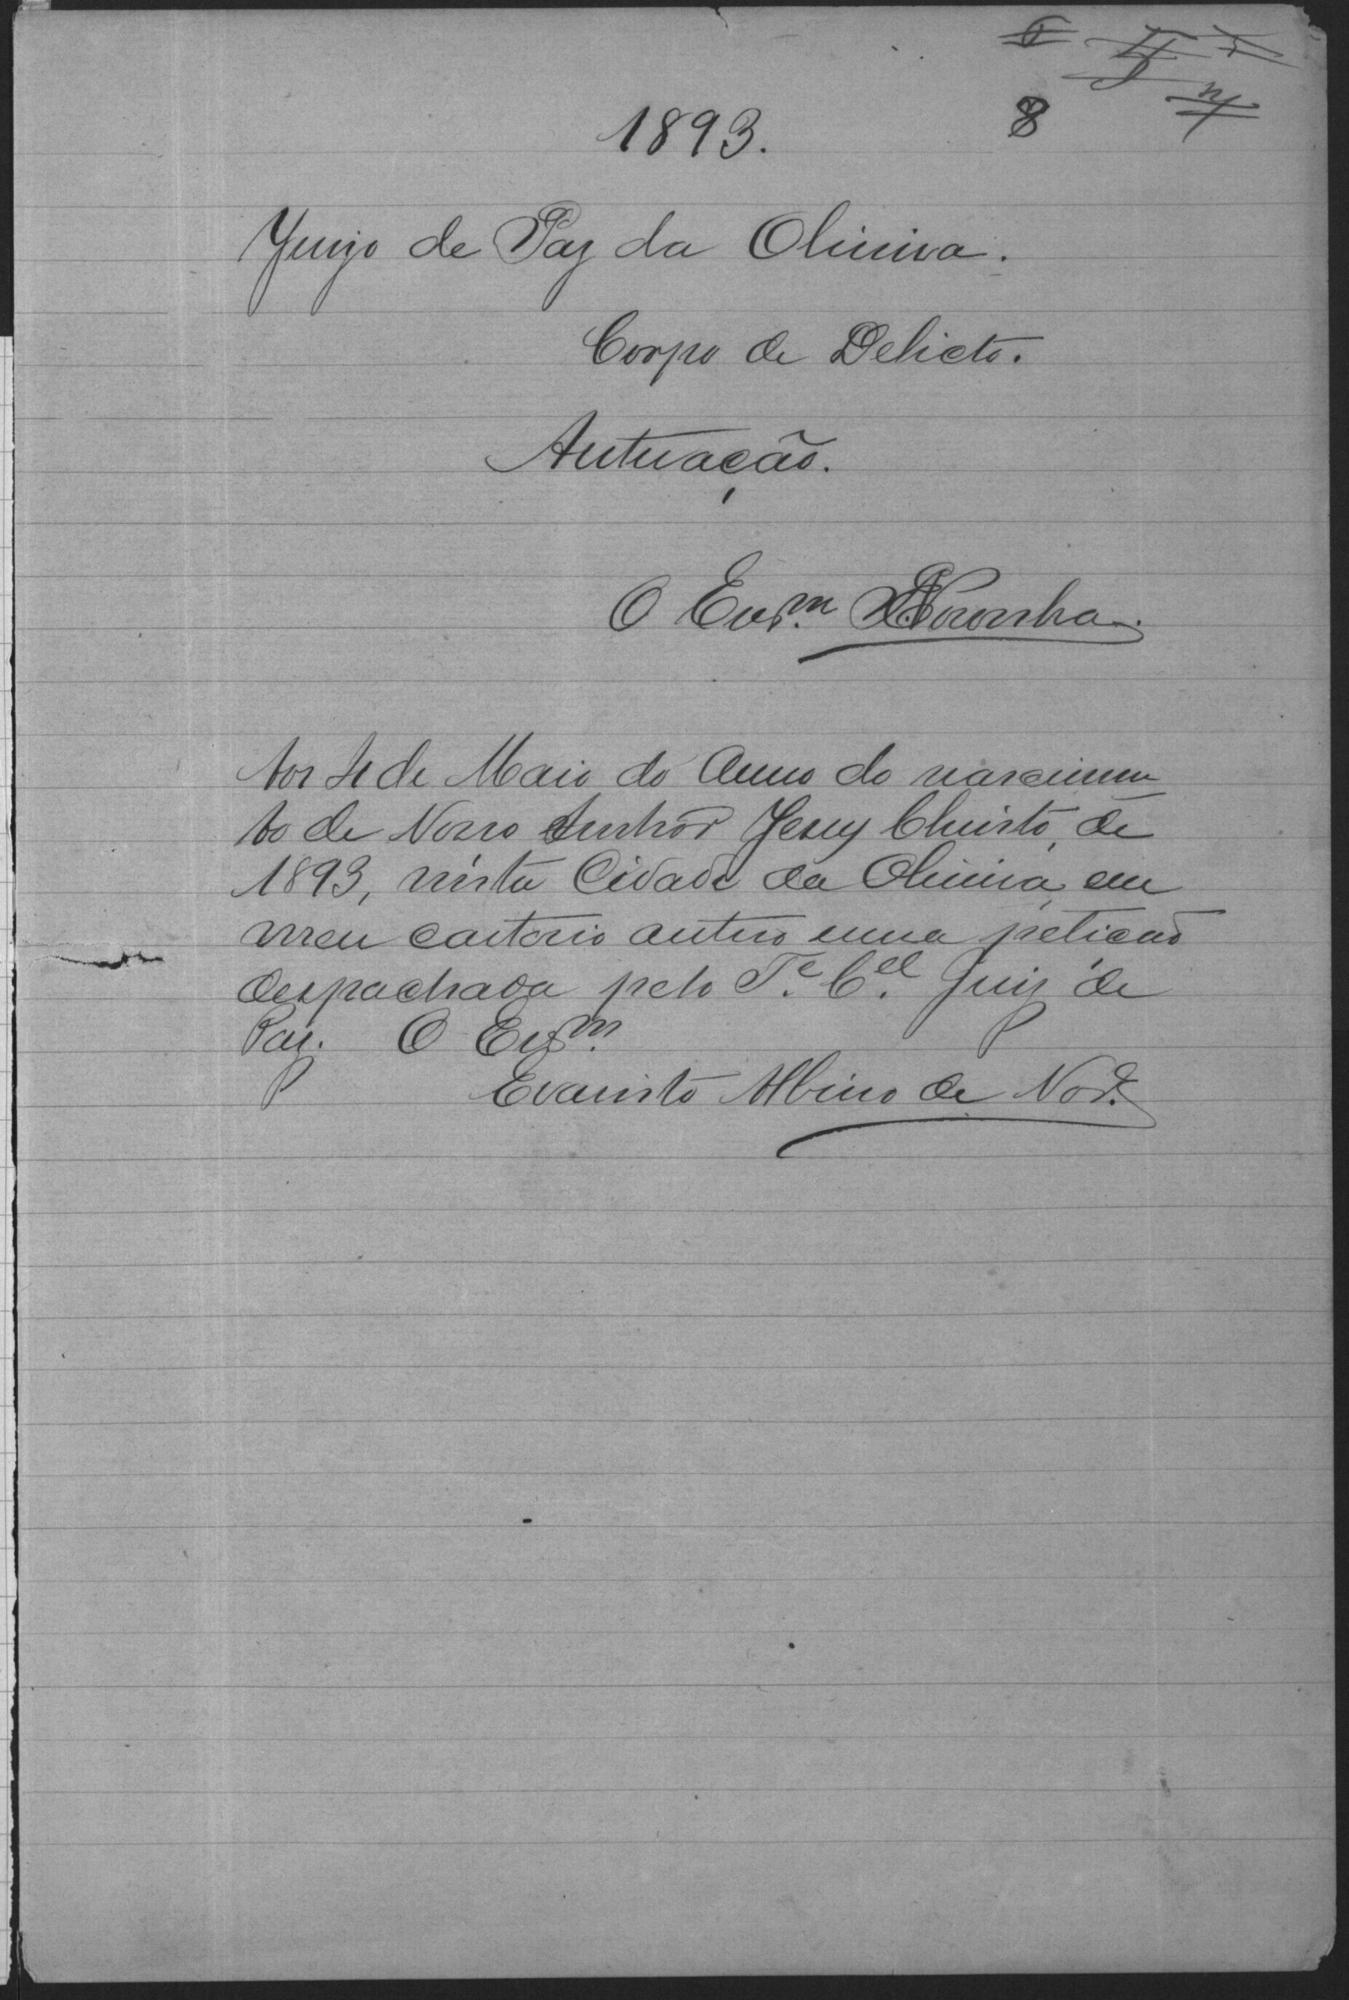 8
1893.
Juizo de Paz da Oliveira.
Corpo de Delicto.
Autuação.
O Escr.m Noronha.
Aos 4 de Maio do Anno do nascimen
to de Nosso Senhor Jesus Christo, de
1893, nésta Cidade da Oliveira, em
meu cartorio autuo uma petição
despachada pelo T.e C.el Juiz de
Paz. O Escr.m
Evaristo Albino de Nor.a